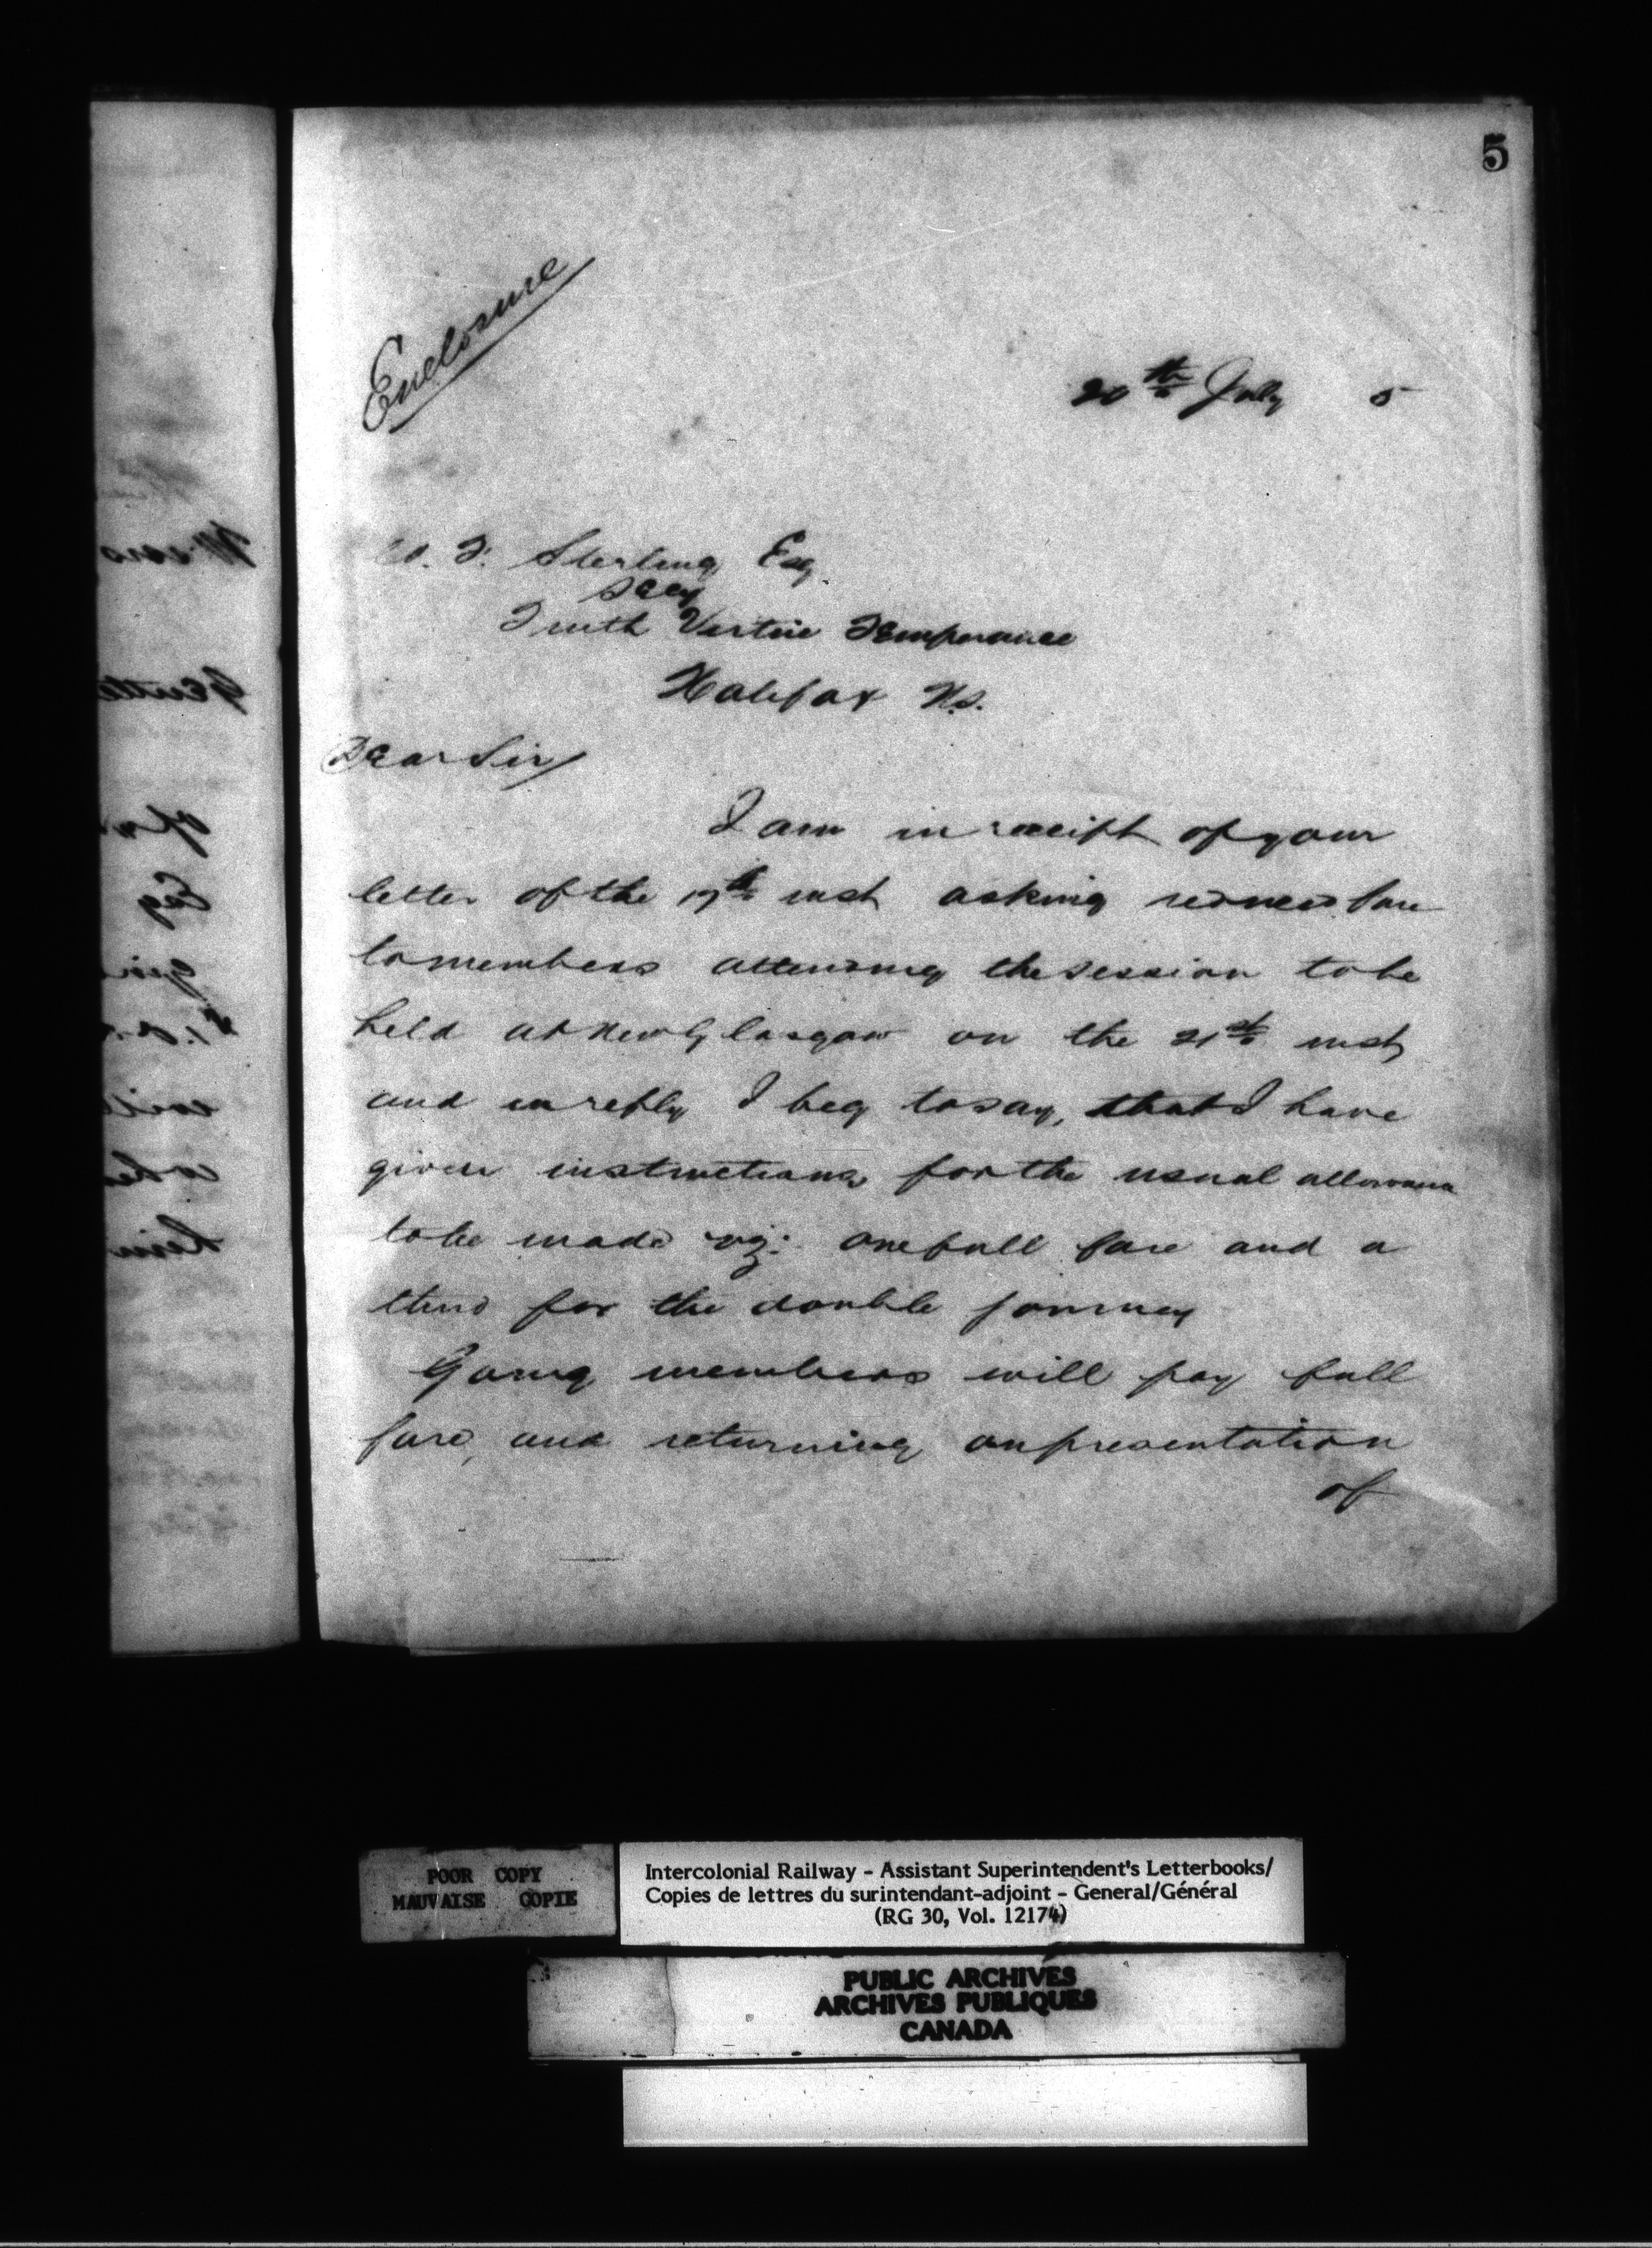 5
Enclosure
20th July 5
W. F. Sterling Esq
Secy
Truth Vertue Temperance
Halifax N.S.
Dear Sir/
I am in receipt of your
letter of the 17th inst asking reduced fare
to members attending the session to be
held at New Glasgow on the 21st inst
and in reply I beg to say, that I have
given instructions for the usual allowance
to be made viz: one full fare and a
third for the double journey
Going members will pay full
fare, and returning on presentation
of
POOR COPY
MAUVAISE COPIE
Intercolonial Railway - Assistant Superintendent's Letterbooks/
Copies de lettres du surintendant-adjoint - General/Général
(RG 30, Vol. 12174)
PUBLIC ARCHIVES
ARCHIVES PUBLIQUES
CANADA